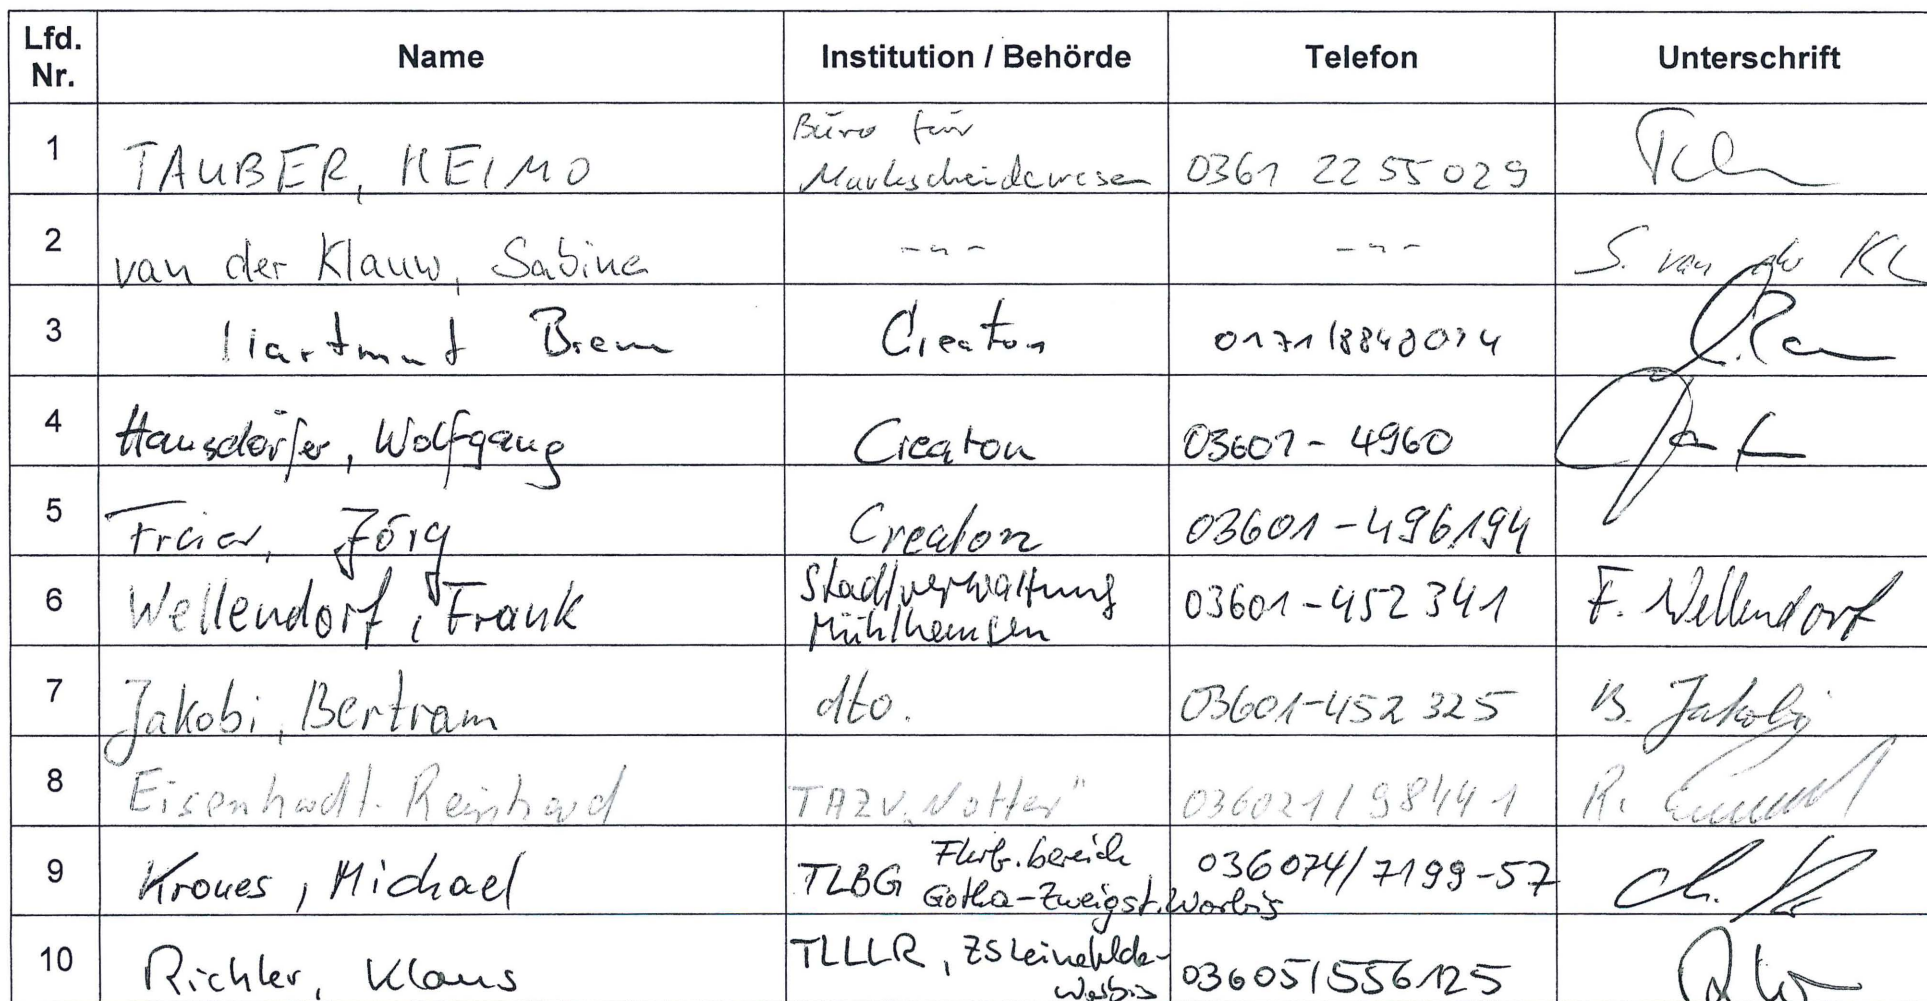 Lfd. Nr. Name Institution / Behörde Telefon Unterschrift
1 TAUBER, HEIMO Büro für Markscheidewesen 0361 22 55 029
2 van der Klauw, Sabine -"- -"- S. van der Kl
3 Hartmut Creaton
4 Hausdörfer, Wolfgang Creaton 03601 - 4960
5 Freier, Jörg Creaton 03601 - 496194
6 Wellendorf, Frank Stadtverwaltung Mühlhausen 03601 - 452 341 F. Wellendorf
7 Jakobi, Bertram dto. 03601-452 325 B. Jakobi
8 Eisenhardt, Reinhard TAZV „Notter" 036021 / 98441 R.
9 Krones, Michael TLBG Flurb.bereich Gotha-Zweigst. Worbis 036074/7199-57
10 Richter, Klaus TLLLR, ZS Leinefelde-Worbis 03605/556125